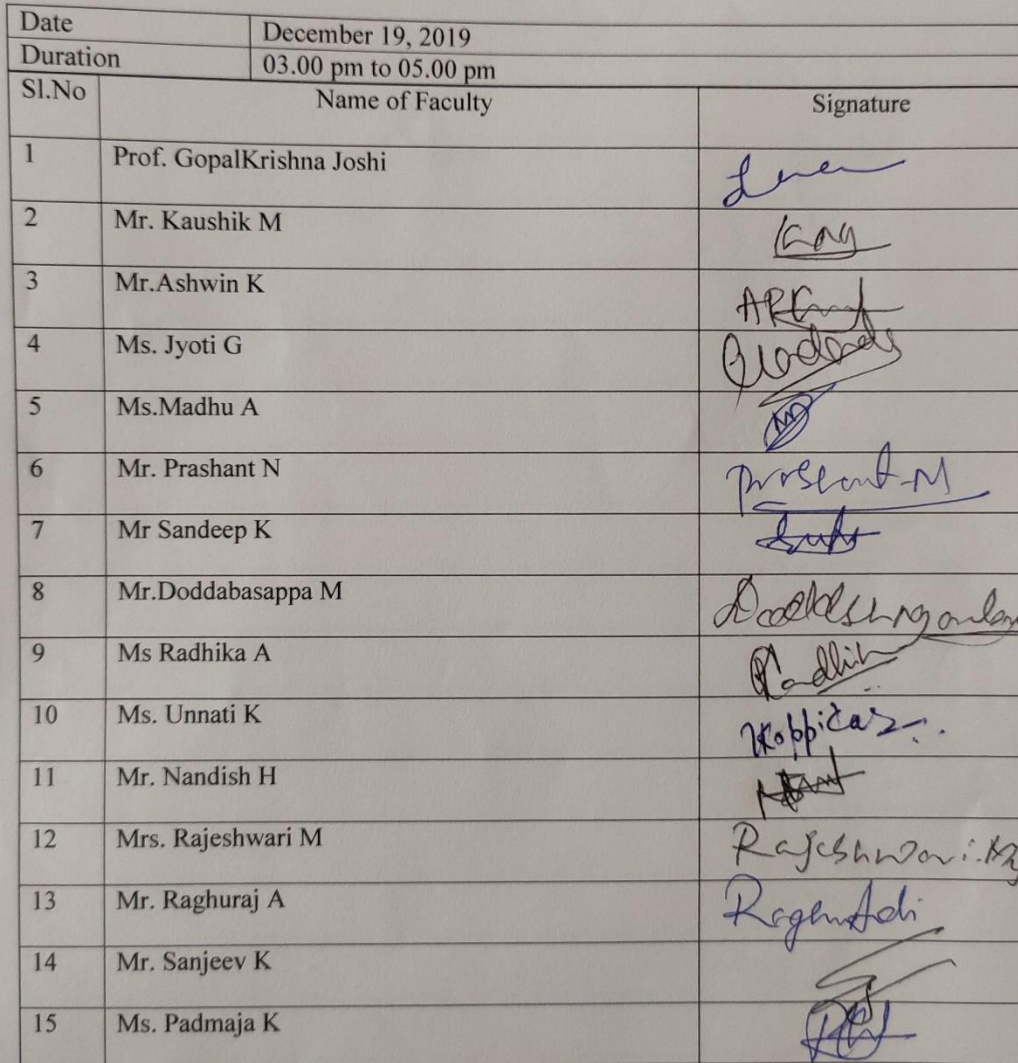 Date December 19, 2019
Duration 03.00 pm to 05.00 pm
Sl.No Name of Faculty Signature
1 Prof. GopalKrishna Joshi
2 Mr. Kaushik M
3 Mr.Ashwin K
4 Ms. Jyoti G
5 Ms.Madhu A
6 Mr. Prashant N Prashant-N
7 Mr Sandeep K
8 Mr.Doddabasappa M
9 Ms Radhika A
10 Ms. Unnati K
11 Mr. Nandish H
12 Mrs. Rajeshwari M Rajeshwari.M
13 Mr. Raghuraj A
14 Mr. Sanjeev K
15 Ms. Padmaja K